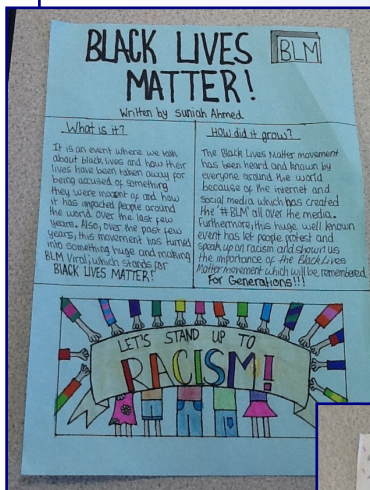 BLACK LIVES
BLM
MATTER!
Written by Suniah Ahmed
What is it?
It is an event where we talk
about black lives and how their
lives have been taken away for
being accused of something
they were inocent of and how
it has impacted people around
the world over the last few
years. Also, over the past few
years, this movement has turned
into something huge and making
BLM Viral; which stands for
BLACK LIVES MATTER!
How did it grow?
The Black Lives Matter movement
has been heard and known by
everyone around the world
because of the internet and
social media which has created
the '#BLM' all over the media.
Furthermore, this huge well known
event has let people protest and
speak up on racism and shown us
the importance of the Black Lives
Matter movement which will be remembered
For Generations!!!
LET'S STAND UP TO
RACISM!